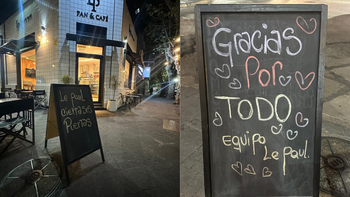 PAN & CAFÉ
Le paul
cierra sus
Puertas
Gracias
Por
TODO
Equipo
Le Paul.